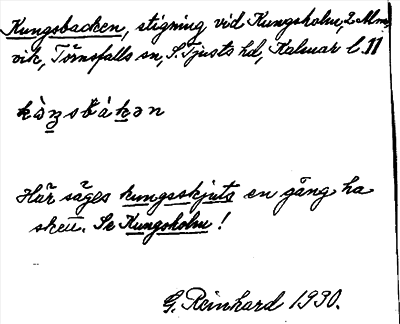 Kungsbacken, stigning vid Kungsholm, 2. Alm-
vik, Törnsfalls sn, S. Tjusts hd, Kalmar l.
Här säges kungsskjuts en gång ha
skett. Se Kungsholm!
G. Reinhard 1930.